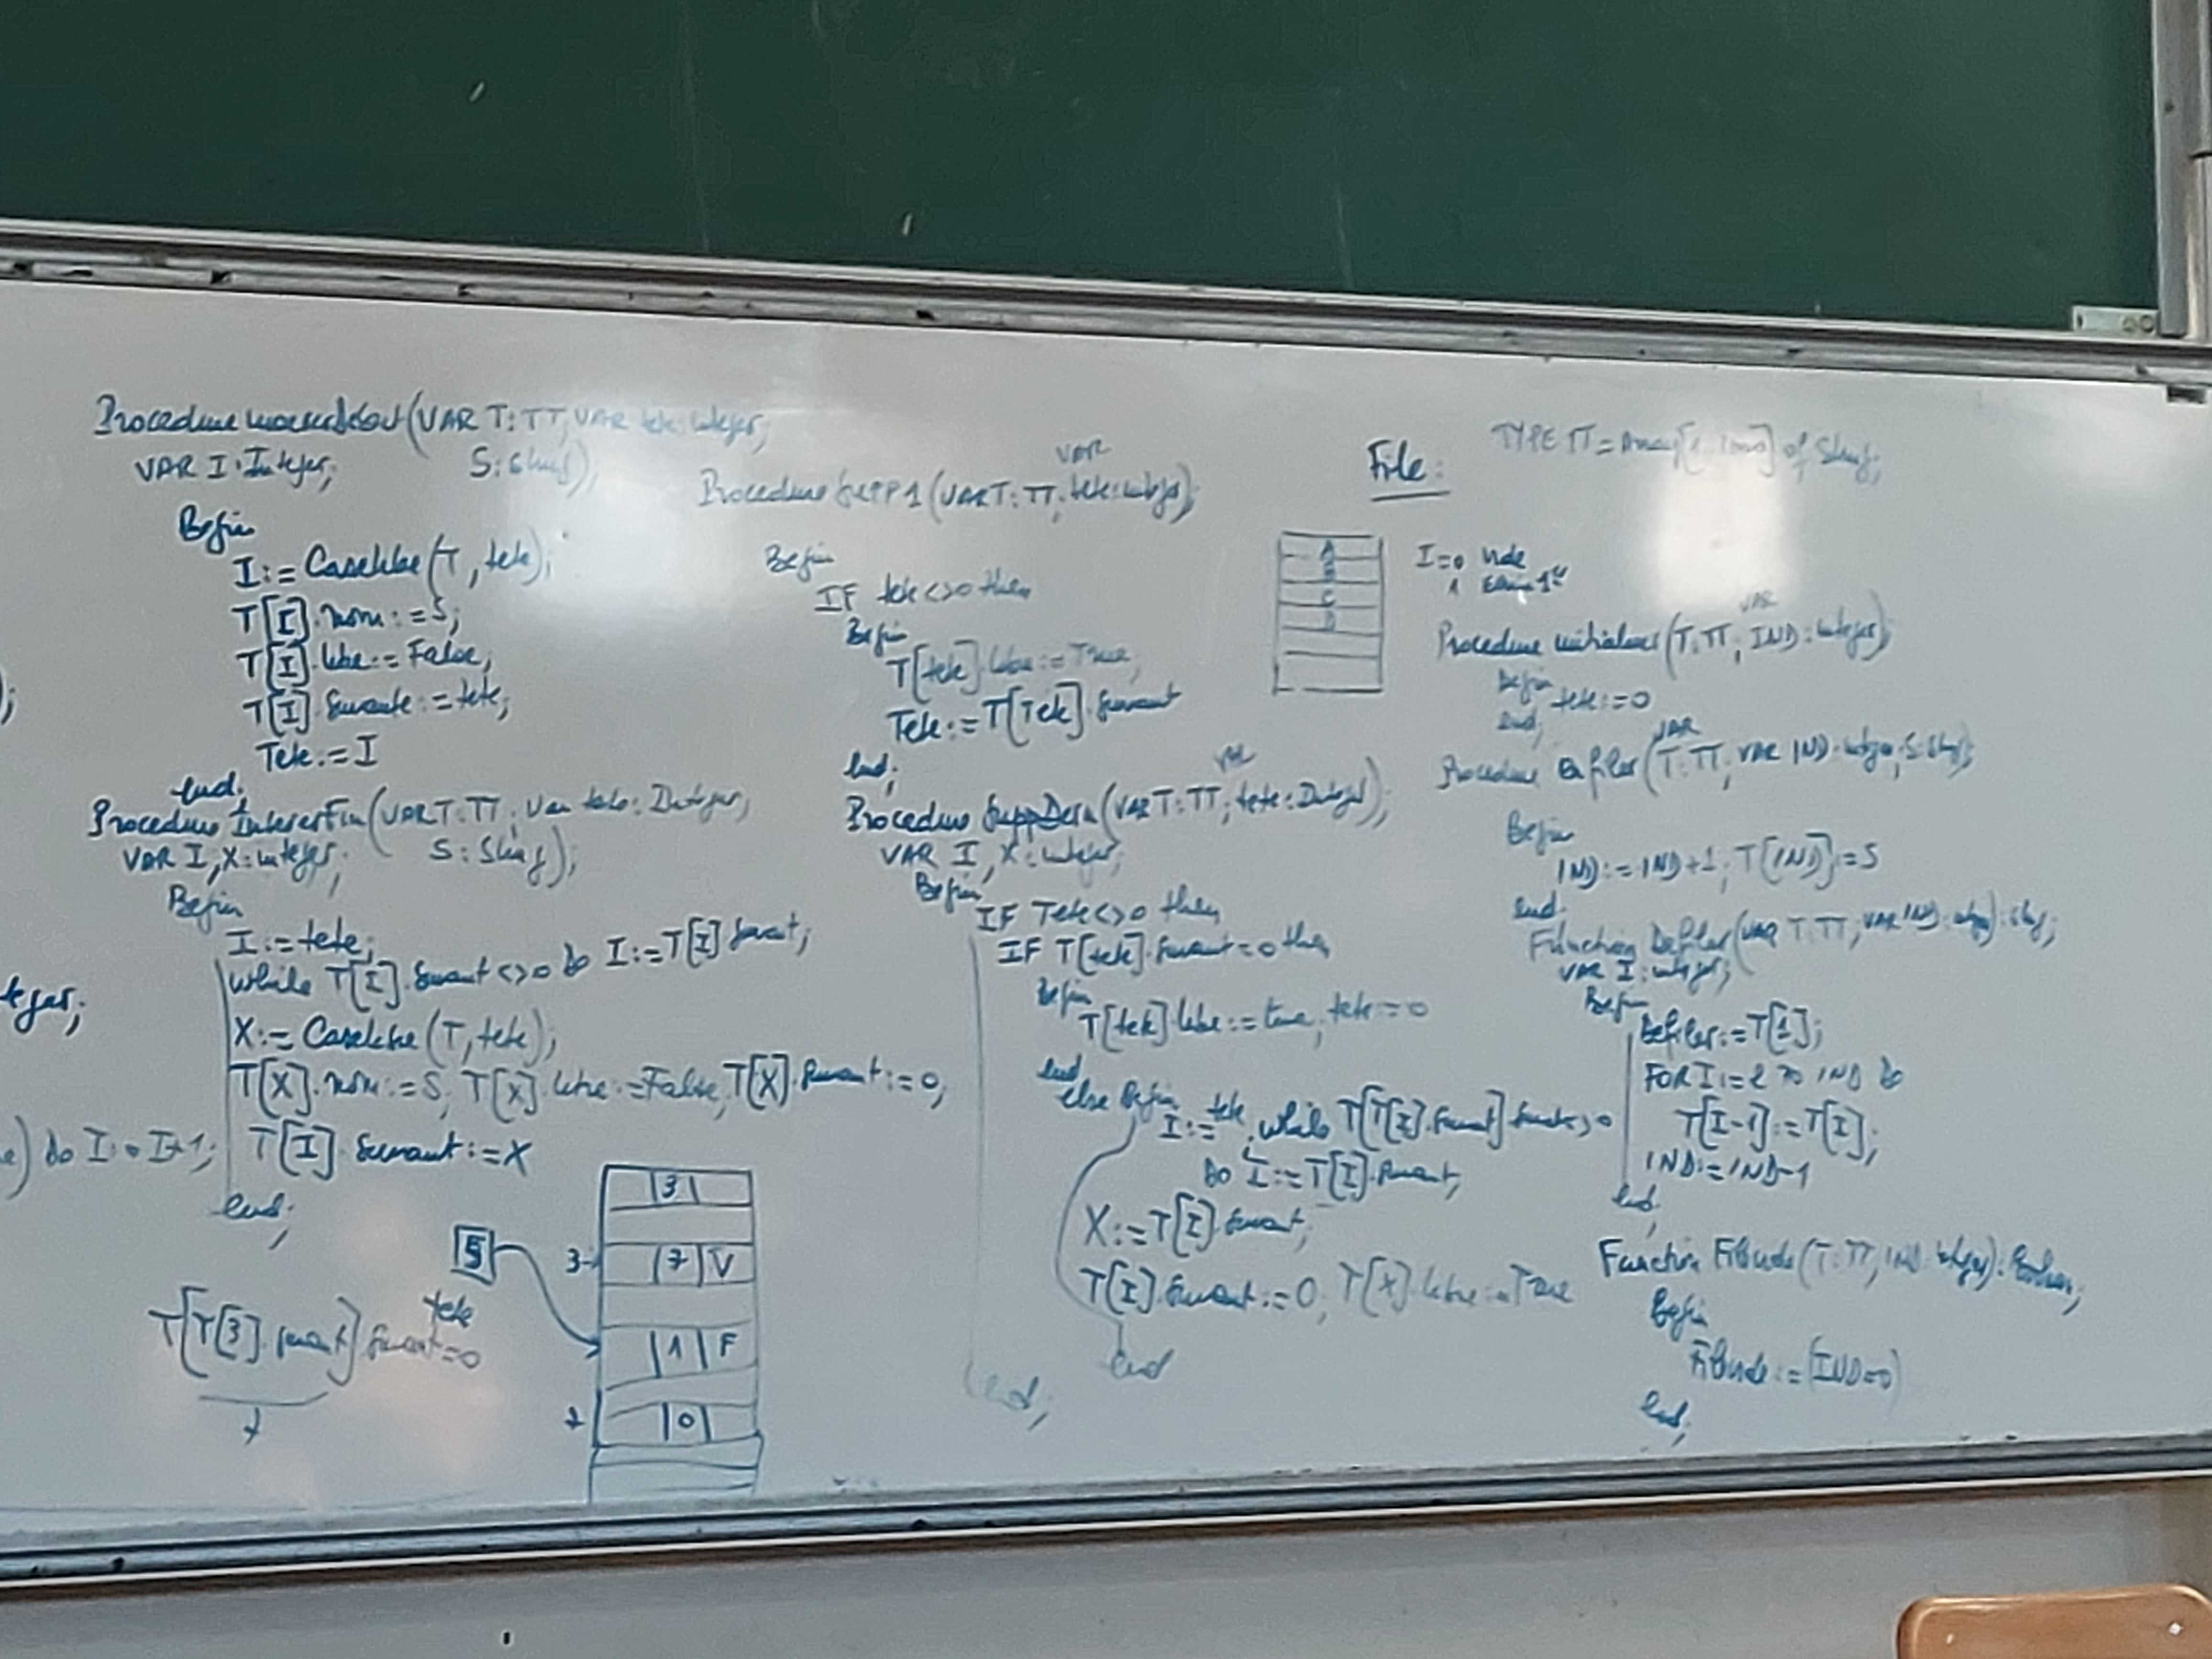 Procedure (VAR T: TT, VAR tete: integer;
VAR I: Integer; S: String);
Begin
I:= Caselibre(T, tete);
T[I].nom:=S;
T[I].libre:= False;
T[I].suivante:= tete;
Tete:= I
end.
Procedure InsererFin(VAR T: TT; Var tete: Integer;
VAR I, X: integer; S: String);
Begin
I:=tete;
while T[I].suivant<>0 do I:=T[I].suivant;
X:= Caselibre(T, tete);
T[X].nom:=S; T[X].libre:=False; T[X].suivant:=0;
T[I].suivant:=X
end;
) do I:=I+1;
5
tete
T[T[3].suivant].suivant=0
7
3
3
7 V
1 F
7
0
Procedure Supp1(VAR T: TT; VAR tete: integer);
Begin
IF tete<>0 then
Begin
T[tete].libre:=True;
Tete:=T[Tete].suivant
end;
Procedure SuppDern(VAR T: TT; VAR tete: Integer);
VAR I, X: integer;
Begin
IF Tete<>0 then
IF T[tete].suivant=0 then
Begin
T[tete].libre:=true; tete:=0
end
else Begin
I:=tete; while T[T[I].suivant].suivant<>0
do I:=T[I].suivant;
X:=T[I].suivant;
T[I].suivant:=0; T[X].libre:=True
end
end;
File:
TYPE TT=Array[1..1000] of String;
A
B
C
D
I=0 vide
1 Elem 1er
Procedure initialiser(T:TT; VAR IND: integer);
Begin
tete:=0
end;
Procedure Enfiler(VAR T:TT; VAR IND: integer; S: String);
Begin
IND:=IND+1; T[IND]:=S
end.
Function Defiler(VAR T:TT; VAR IND: integer): String;
VAR I: integer;
Begin
Defiler:=T[1];
FOR I:=2 TO IND DO
T[I-1]:=T[I];
IND:=IND-1
end;
Function Filvide(T:TT; IND: integer): Boolean;
Begin
Filvide:=(IND=0)
end;